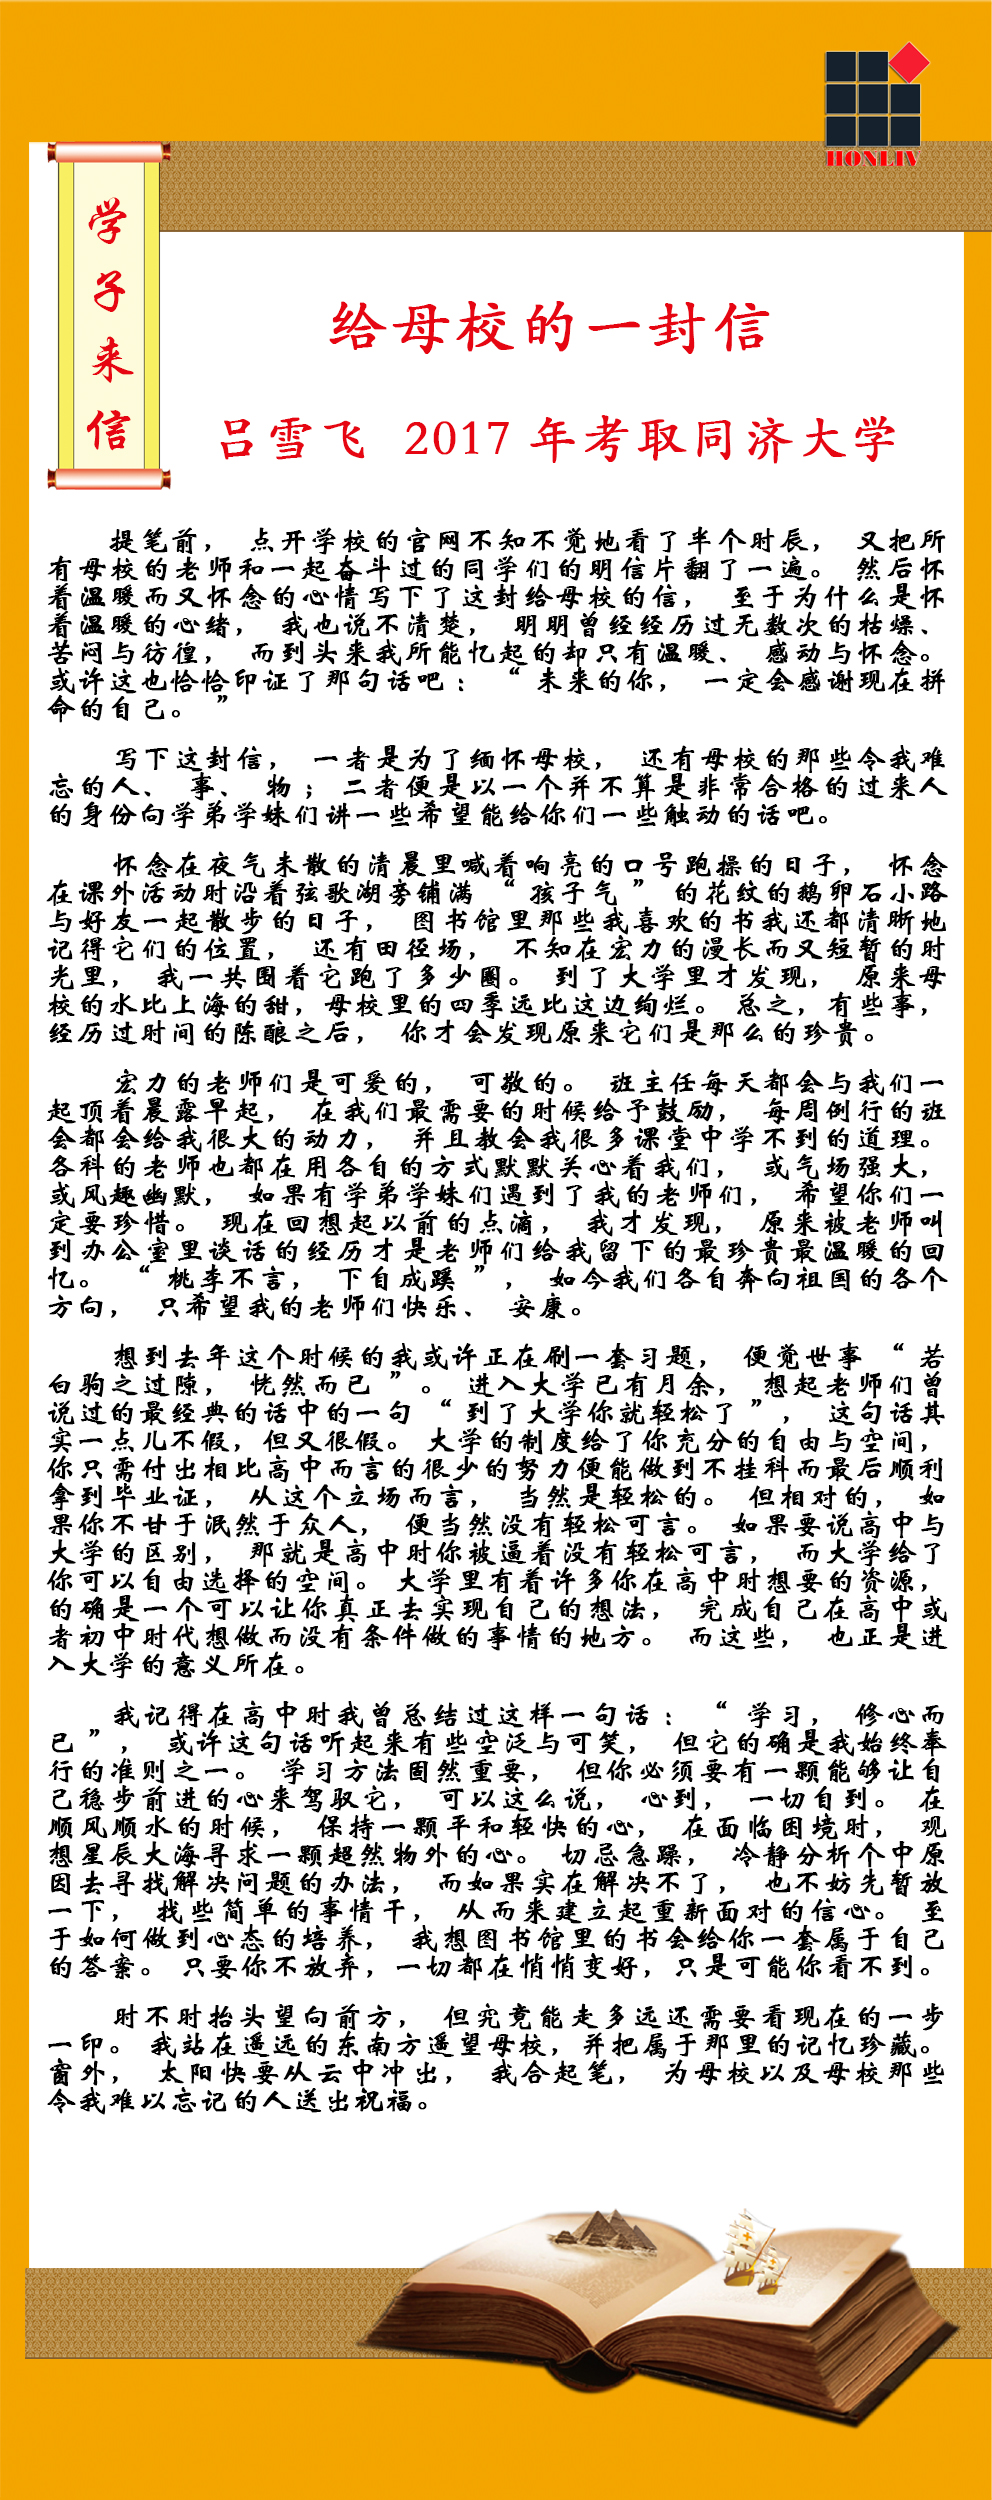 HONLIV
学子来信
给母校的一封信
吕雪飞 2017 年考取同济大学
提笔前， 点开学校的官网不知不觉地看了半个时辰， 又把所
有母校的老师和一起奋斗过的同学们的明信片翻了一遍。 然后怀
着温暖而又怀念的心情写下了这封给母校的信， 至于为什么是怀
着温暖的心绪， 我也说不清楚， 明明曾经经历过无数次的枯燥、
苦闷与彷徨， 而到头来我所能忆起的却只有温暖、 感动与怀念。
或许这也恰恰印证了那句话吧：“ 未来的你， 一定会感谢现在拼
命的自己。 ”
写下这封信， 一者是为了缅怀母校， 还有母校的那些令我难
忘的人、 事、 物 ；二者便是以一个并不算是非常合格的过来人
的身份向学弟学妹们讲一些希望能给你们一些触动的话吧。
怀念在夜气未散的清晨里喊着响亮的口号跑操的日子， 怀念
在课外活动时沿着弦歌湖旁铺满 “ 孩子气 ” 的花纹的鹅卵石小路
与好友一起散步的日子， 图书馆里那些我喜欢的书我还都清晰地
记得它们的位置， 还有田径场， 不知在宏力的漫长而又短暂的时
光里， 我一共围着它跑了多少圈。 到了大学里才发现， 原来母
校的水比上海的甜，母校里的四季远比这边绚烂。 总之，有些事，
经历过时间的陈酿之后， 你才会发现原来它们是那么的珍贵。
宏力的老师们是可爱的， 可敬的。 班主任每天都会与我们一
起顶着晨露早起， 在我们最需要的时候给予鼓励， 每周例行的班
会都会给我很大的动力， 并且教会我很多课堂中学不到的道理。
各科的老师也都在用各自的方式默默关心着我们， 或气场强大，
或风趣幽默， 如果有学弟学妹们遇到了我的老师们， 希望你们一
定要珍惜。 现在回想起以前的点滴， 我才发现， 原来被老师叫
到办公室里谈话的经历才是老师们给我留下的最珍贵最温暖的回
忆。 “ 桃李不言， 下自成蹊 ”， 如今我们各自奔向祖国的各个
方向， 只希望我的老师们快乐、 安康。
想到去年这个时候的我或许正在刷一套习题， 便觉世事 “ 若
白驹之过隙， 恍然而已 ”。 进入大学已有月余， 想起老师们曾
说过的最经典的话中的一句 “ 到了大学你就轻松了 ”， 这句话其
实一点儿不假，但又很假。 大学的制度给了你充分的自由与空间，
你只需付出相比高中而言的很少的努力便能做到不挂科而最后顺利
拿到毕业证， 从这个立场而言， 当然是轻松的。 但相对的， 如
果你不甘于泯然于众人， 便当然没有轻松可言。 如果要说高中与
大学的区别， 那就是高中时你被逼着没有轻松可言， 而大学给了
你可以自由选择的空间。 大学里有着许多你在高中时想要的资源，
的确是一个可以让你真正去实现自己的想法， 完成自己在高中或
者初中时代想做而没有条件做的事情的地方。 而这些， 也正是进
入大学的意义所在。
我记得在高中时我曾总结过这样一句话 ：“ 学习， 修心而
已 ”， 或许这句话听起来有些空泛与可笑， 但它的确是我始终奉
行的准则之一。 学习方法固然重要， 但你必须要有一颗能够让自
己稳步前进的心来驾驭它， 可以这么说， 心到， 一切自到。 在
顺风顺水的时候， 保持一颗平和轻快的心， 在面临困境时， 观
想星辰大海寻求一颗超然物外的心。 切忌急躁， 冷静分析个中原
因去寻找解决问题的办法， 而如果实在解决不了， 也不妨先暂放
一下， 找些简单的事情干， 从而来建立起重新面对的信心。 至
于如何做到心态的培养， 我想图书馆里的书会给你一套属于自己
的答案。 只要你不放弃，一切都在悄悄变好，只是可能你看不到。
时不时抬头望向前方， 但究竟能走多远还需要看现在的一步
一印。 我站在遥远的东南方遥望母校，并把属于那里的记忆珍藏。
窗外， 太阳快要从云中冲出， 我合起笔， 为母校以及母校那些
令我难以忘记的人送出祝福。